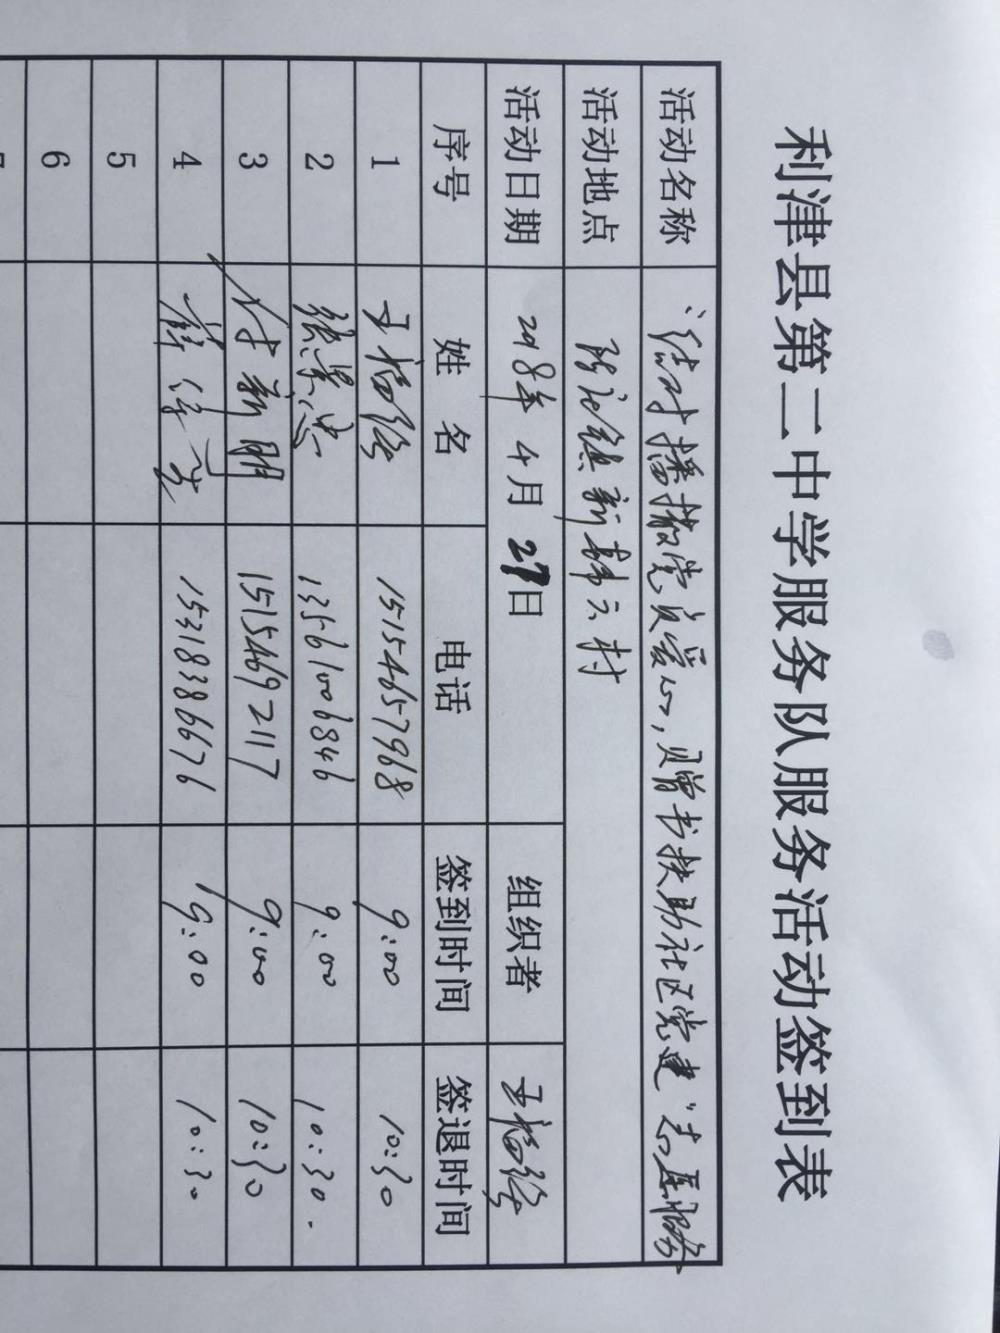 利津县第二中学服务队服务活动签到表
活动名称 “结对播撒党员爱心,赠书扶助社区党建”志愿服务
活动地点 陈庄镇新韩六村
活动日期 2018年4月27日 组织者
序号 姓名 电话 签到时间 签退时间
1 15154657968 9:00 10:30
2 张景忠 13561006846 9:00 10:30.
3 付新明 15154692117 9:00 10:30
4 15318386676 9:00 10:30
5
6